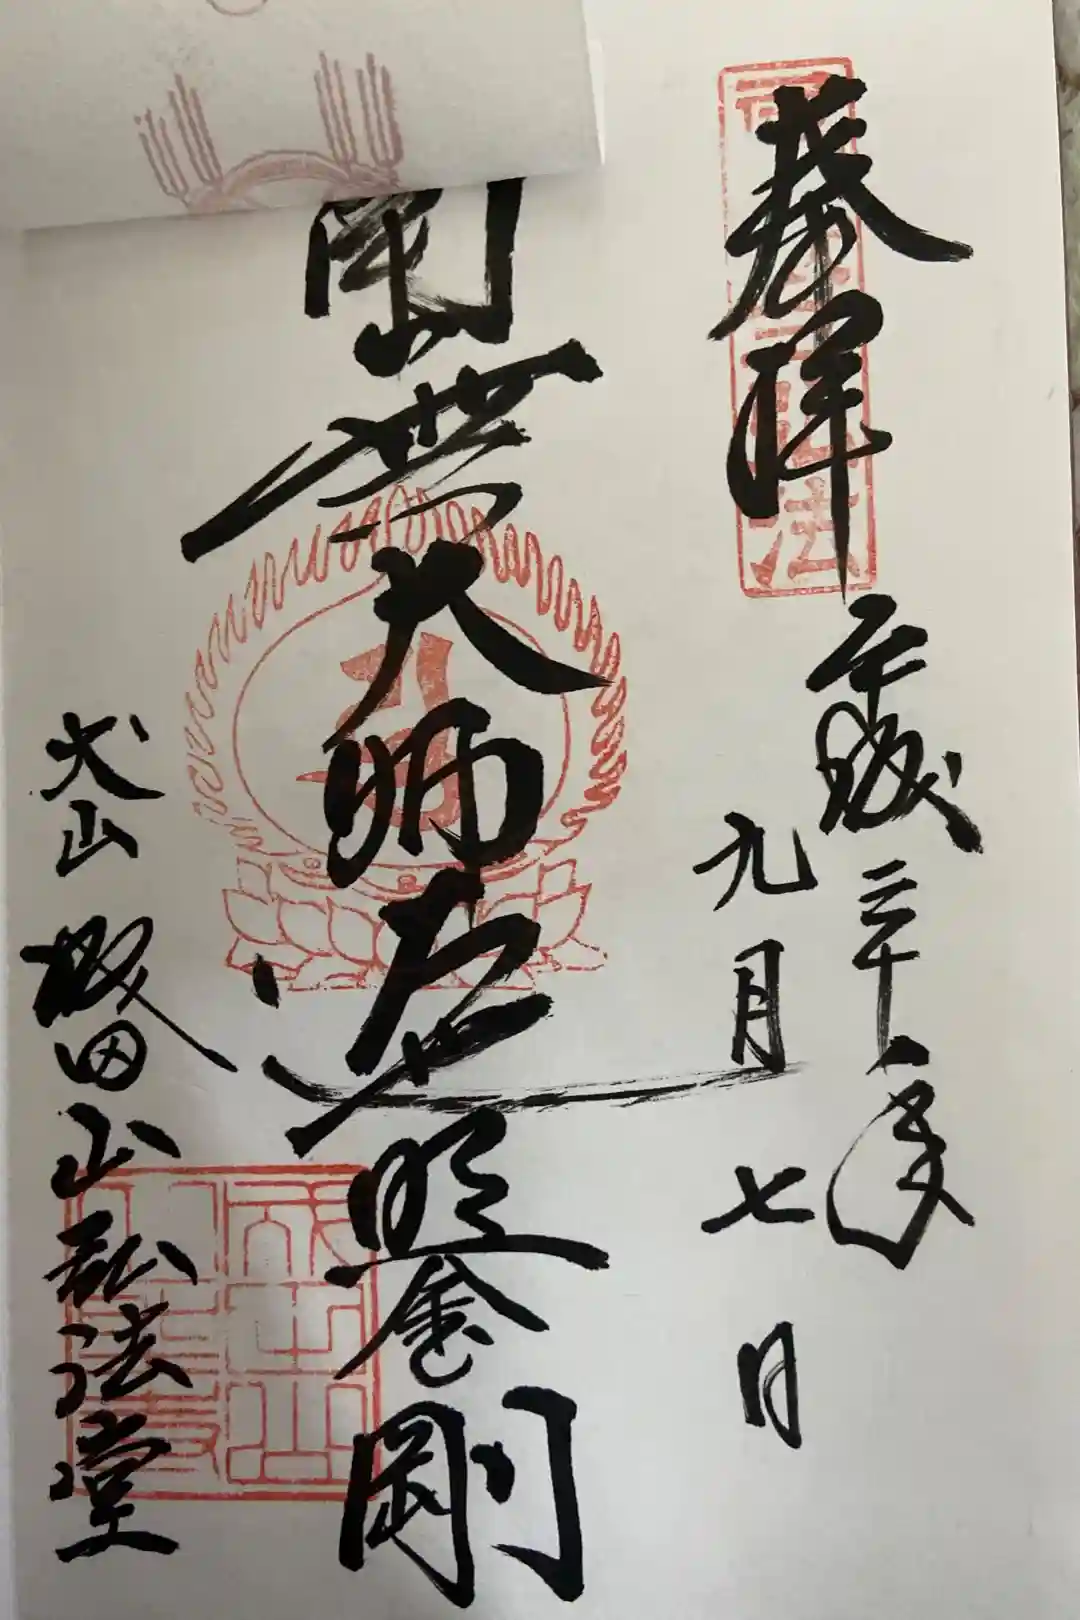 奉拝
平成三十年
九月七日
南無大師遍照金剛
犬山 成田山弘法堂